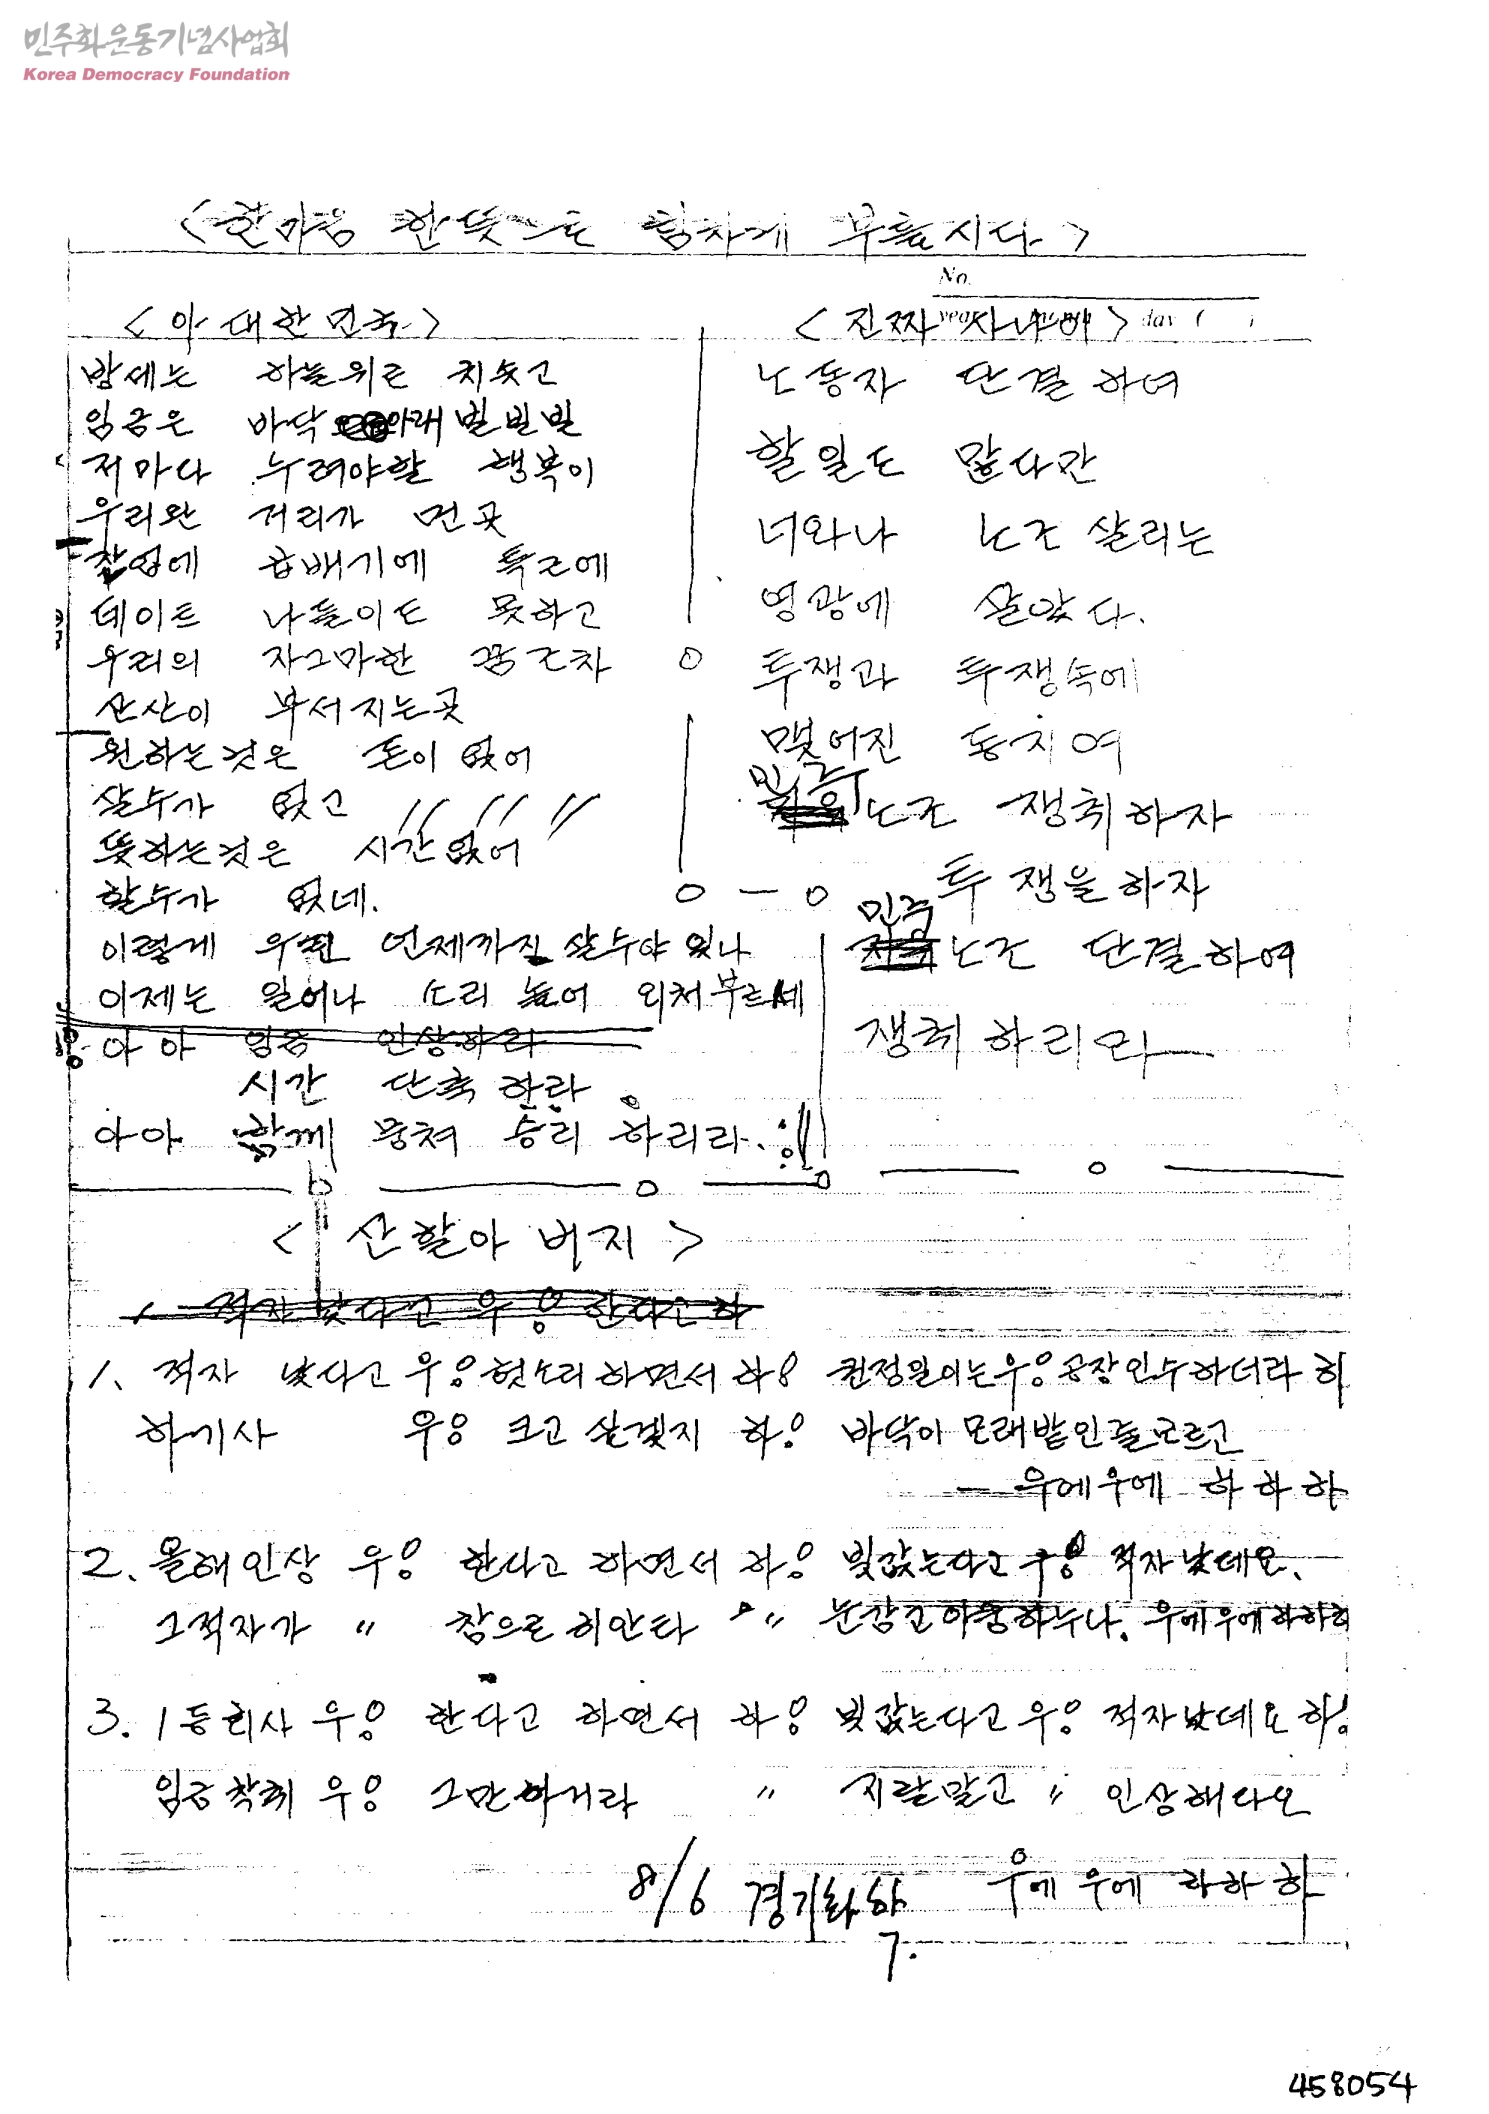 민주화운동기념사업회
Korea Democracy Foundation
<한마음 한뜻으로 힘차게 부릅시다>
No.
<아 대한민국>
방세는 하늘위로 치솟고
임금은 바닥 아래 빌빌빌
저마다 누려야할 행복이
우리완 거리가 먼곳
잔업에 곱배기에 특근에
데이트 나들이도 못하고
우리의 자그마한 꿈조차
산산이 부서지는곳
원하는것은 돈이 없어
살수가 없고 〃 〃 〃
뜻하는것은 시간없어
할수가 없네.
이렇게 우린 언제까지 살수야 있나
이제는 일어나 소리 높여 외쳐부르세
아아 임금 인상하라
시간 단축하라
아아 함께 뭉쳐 승리 하리라.
<진짜 사나이> day ( )
노동자 단결하여
할일도 많다만
너와나 노조 살리는
영광에 살았다.
투쟁과 투쟁속에
맺어진 동지여
민주 노조 쟁취하자
투쟁을하자
민주 노조 단결하여
쟁취하리라
<산할아버지>
1. 적자 났다고 우웅 한다고 하
1. 적자 났다고 우웅 헛소리하면서 하웅 권정원이는우웅 공장인수하더라 하
하기사 우웅 크고 살겠지 하웅 바닥이 모래밭인줄모르고
— 우에우에 하하하
2. 올해인상 우웅 한다고 하면서 하웅 빚갚는다고 우웅 적자났데요.
그적자가 〃 참으로 희안타 〃 눈감고 아웅하누나. 우에우에하하하
3. 1등회사 우웅 한다고 하면서 하웅 빚갚는다고 우웅 적자났데요 하웅
임금착취 우웅 그만하거라 〃 지랄말고 〃 인상해다오
우에 우에 하하하
8/6 경기화학
7.
458054